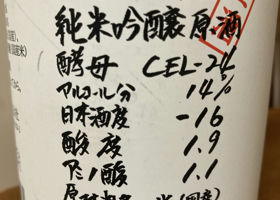 純米吟醸原酒
酵母 CEL-24
アルコール分 14%
日本酒度 -16
酸度 1.9
アミノ酸 1.1